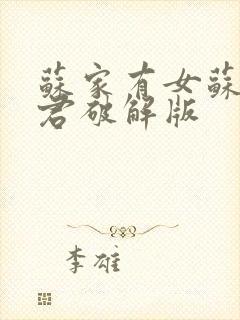 蘇家有女蘇
君破解版
李雄